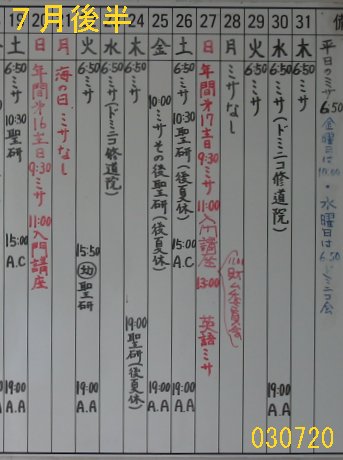 7月後半
土
6:50 ミサ
10:30 聖研
15:00
A.C
19:00
A.A
日
年間第16主日
9:30 ミサ
11:00 入門講座
月
海の日 ミサなし
火
6:50 ミサ
15:50
幼 聖研
19:00
A.A
水
6:50 ミサ(ドミニコ修道院)
24
木
6:50 ミサ
19:00 聖研(後夏休)
25
金
10:00 ミサ その後聖研(後夏休)
19:00
A.A
26
土
6:50 ミサ
10:30 聖研(後夏休)
15:00
A.C
19:00
A.A
27
日
年間第17主日
9:30 ミサ
11:00 入門講座
13:00 英語ミサ
財ム委員会
28
月
ミサなし
29
火
6:50 ミサ
30
水
6:50 ミサ(ドミニコ修道院)
19:00
A.A
31
木
6:50 ミサ
平日のミサ 6:50
金曜日は 10:00・水曜日は 6:50 ドミニコ会
030720